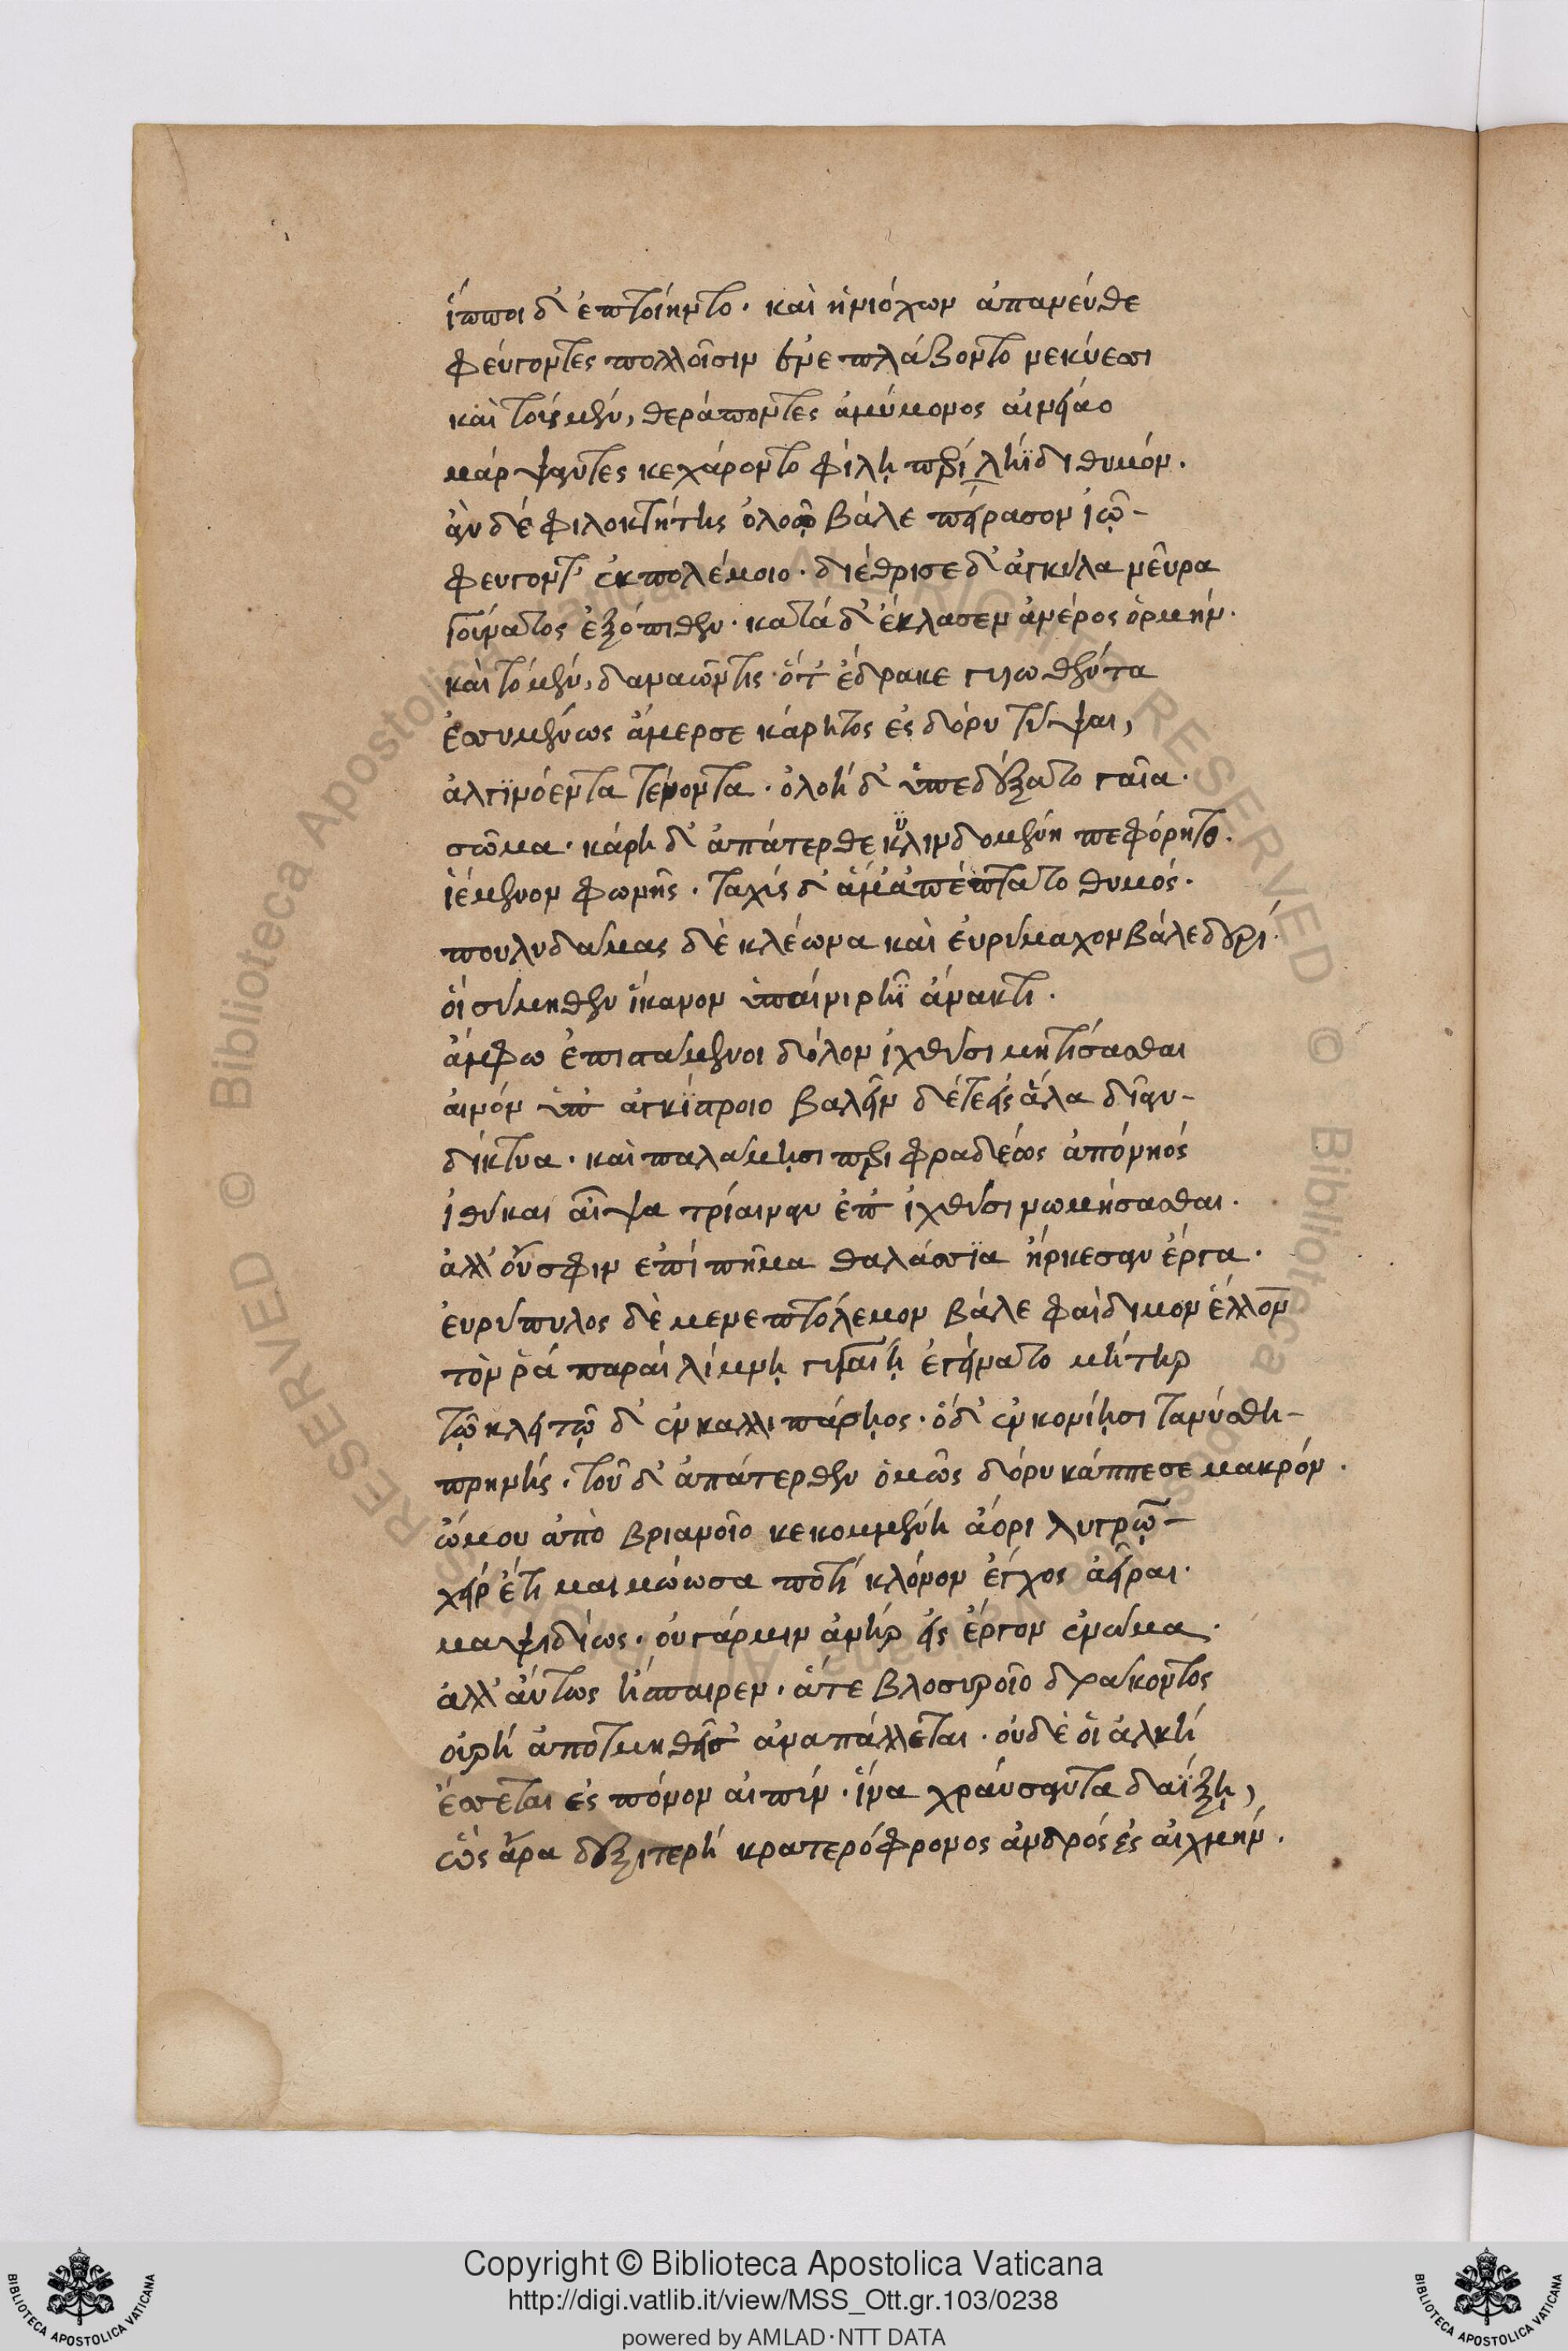 ἵπποι δ' ἐπτοίηντο. καὶ ἡνιόχων ἀπανεύθε
φεύγοντες πολλοῖσιν ἐνεπλάζοντο νεκύεσσι
καὶ τοὺς μέν, θεράποντες ἀμύμονος αἰνείαο
μάρψαντες κεχάροντο φίλῃ περὶ ληΐδι θυμόν.
ἂν δὲ φιλοκτήτης ὀλοῷ βάλε πείρασον ἰῷ-
φεύγοντ' ἐκ πολέμοιο. διέθρισε δ' ἀγκύλα νεῦρα
γούνατος ἐξόπιθεν. κατὰ δ' ἔκλασεν ἀνέρος ὁρμήν.
καὶ τὸ μέν, δαναῶν τις ὅτ' ἔδρακε γυιωθέντα
ἐσσυμένως ἄμερσε κάρητος ἐς δόρυ τύψαι,
ἀλγινόεντα τένοντα. ὀλοὴ δ' ὑπεδέξατο γαῖα.
σῶμα. κάρη δ' ἀπάτερθε κυλινδομένη πεφόρητο.
ἱέμενον φωνῆς. ταχὺς δ' ἅμ' ἀπέπτατο θυμός.
πουλυδάμας δὲ κλέωνα καὶ εὐρύμαχον βάλε δουρί.
οἳ σύμηθεν ἵκανον ὑπαὶ νιρῆϊ ἄνακτι.
ἄμφω ἐπιστάμενοι δόλον ἰχθύσι μητίσασθαι
αἰνόν ὑπ' ἀγκίστροιο βαλεῖν δέ τε εἰς ἅλα δῖαν-
δίκτυα. καὶ παλάμῃσι περιφραδέως ἀπὸ νηός
ἰθύκαι αἶψα τρίαιναν ἐπ' ἰχθύσι νωμήσασθαι.
ἀλλ' οὔ σφιν ἐπὶ πῆμα θαλάσσϊα ἤρκεσαν ἔργα.
εὐρύπυλος δὲ μενεπτόλεμον βάλε φαίδιμον ἕλλον
τόν ῥα παραὶ λίμνῃ γυγαίῃ ἐγείνατο μήτηρ
τῷ κλειτῷ δ' ἐν καλλιπάρῃος. ὁ δ' ἐν κονίῃσι τανύσθη-
πρηνής. τοῦ δ' ἀπάτερθεν ὁμῶς δόρυ κάππεσε μακρόν.
ὤμου ἀπὸ βριαροῖο κεκομμένη ἄορι λυγρῷ-
χεὶρ ἔτι μαιμώωσα ποτὶ κλόνον ἔγχος ἀεῖραι.
μαψιδίως. οὐ γάρ μιν ἀνὴρ εἰς ἔργον ἐνώμα.
ἀλλ' αὔτως ἤσπαιρεν. ἅτε βλοσυροῖο δράκοντος
οὐρὴ ἀποτμηθεῖσ' ἀναπάλλεται. οὐδέ οἱ ἀλκὴ
ἕσπεται ἐς πόνον αἰπύν. ἵνα χραύσαντα δαΐξῃ,
ὣς ἄρα δεξιτερὴ κρατερόφρονος ἀνδρός ἐς αἰχμήν.
Copyright © Biblioteca Apostolica Vaticana
http://digi.vatlib.it/view/MSS_Ott.gr.103/0238
powered by AMLAD·NTT DATA